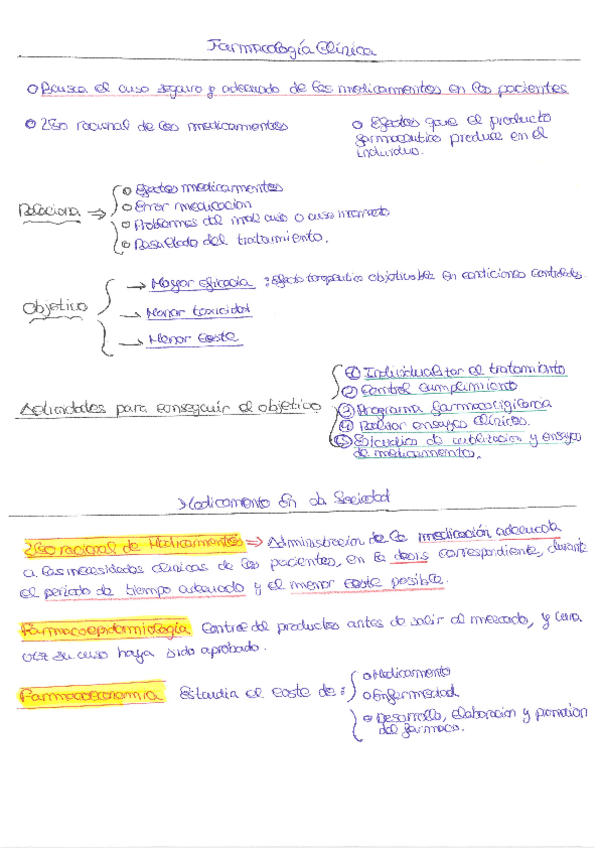 Farmacología Clínica
o Busca el uso seguro y adecuado de los medicamentos en los pacientes
o Uso racional de los medicamentos
o Efectos que el producto
farmaceutico produce en el
individuo.
Relaciona ⇒
o Efectos medicamentos
o Error medicacion
o Problemas del mal uso o uso incorrecto
o Resultado del tratamiento.
Objetivo
→ Mayor eficacia : Efecto terapéutico objetivable en condiciones controladas.
→ Menor toxicidad
→ Menor coste
Actividades para conseguir el objetivo
① Individualizar el tratamiento
② Control cumplimiento
③ Programa farmacovigilancia
④ Realizar ensayos clínicos.
⑤ Estudios de utilizacion y ensayo
de medicamentos.
Medicamento En la Sociedad
Uso racional de Medicamentos ⇒ Administracion de la medicación adecuada
a las necesidades clinicas de los pacientes, en la dosis correspondiente, durante
el periodo de tiempo adecuado y el menor coste posible.
Farmacoepidemiología Control del productos antes de salir al mercado, y una
vez su uso haya sido aprobado.
Farmacoeconomia Estudia el coste de :
o Medicamento
o Enfermedad
o Desarrollo, elaboracion y promocion
del farmaco.